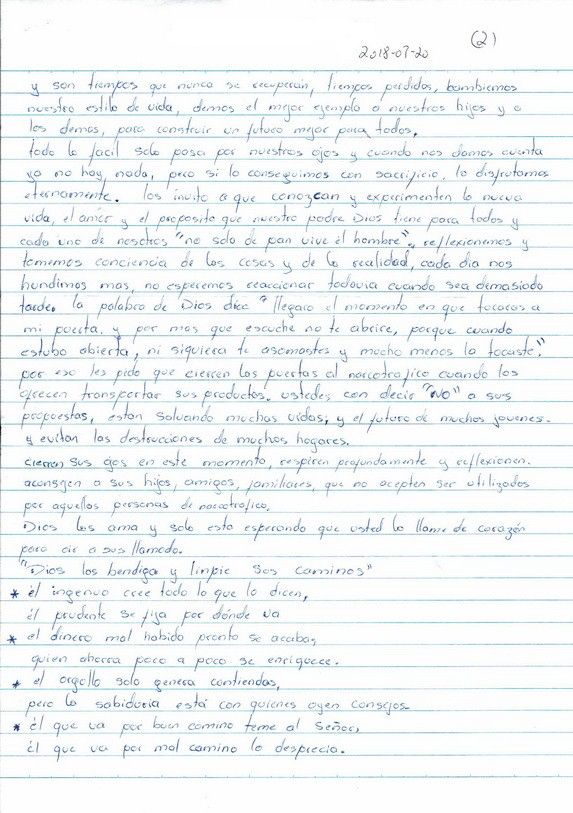 (2)
2018-07-20
y son tiempos que nunca se recuperan, tiempos perdidos, cambiemos
nuestro estilo de vida, demos el mejor ejemplo a nuestros hijos y a
los demas, para construir un futuro mejor para todos.
todo lo facil solo pasa por nuestros ojos y cuando nos damos cuenta
ya no hay, nada, pero si lo conseguimos con sacrificio, lo disfrutamos
eternamente. los invito a que conozcan y experimenten la nueva
vida, el amor y el proposito que nuestro padre Dios tiene para todos y
cada uno de nosotros "no solo de pan vive él hombre", reflexionemos y
tomemos conciencia de las cosas y de la realidad, cada dia nos
hundimos mas, no esperemos reaccionar todavia cuando sea demasiado
tarde. la palabra de Dios dice "llegara el momento en que tocaras a
mi puerta, y por mas que escuche no te abrire, porque cuando
estubo abierta, ni siquiera te asomastes y mucho menos la tocaste."
por eso les pido que cierren las puertas al narcotrafico cuando los
ofrecen transportar sus productos, ustedes con decir "NO" a sus
propuestas, estan salvando muchas vidas; y el futuro de muchos jovenes.
y evitan las destrucciones de muchos hogares.
cierren sus ojos en este momento, respiren profundamente y reflexionen.
aconsejen a sus hijos, amigos, familiares, que no acepten ser utilizados
por aquellas personas de narcotrafico,
Dios los ama y solo esta esperando que usted lo llame de corazón
para oir a sus llamado.
"Dios los bendiga y limpie sus caminos"
* él ingenuo cree todo lo que lo dicen,
él prudente se fija por dónde va
* el dinero mal habido pronto se acaba,
quien ahorra poco a poco se enriquece.
* el orgollo solo genera contiendas,
pero la sabiduria está con quienes oyen consejos.
* él que va por buen camino teme al Señor,
él que va por mal camino lo desprecia.